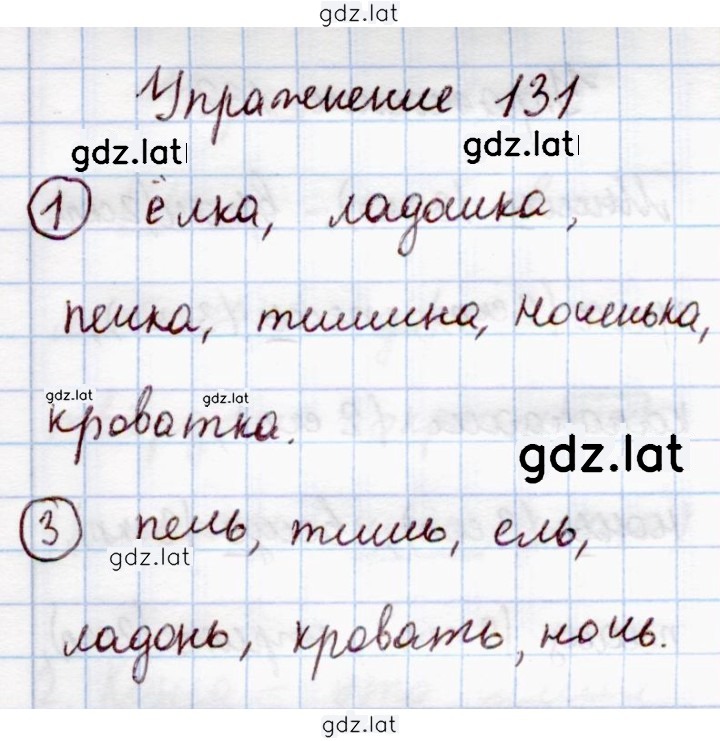 gdz.lat
Упражнение 131
gdz.lat gdz.lat
1 ёлка, ладошка,
печка, тишина, ноченька,
gdz.lat gdz.lat
кроватка.
gdz.lat
3 печь, тишь, ель,
gdz.lat
ладонь, кровать, ночь.
gdz.lat